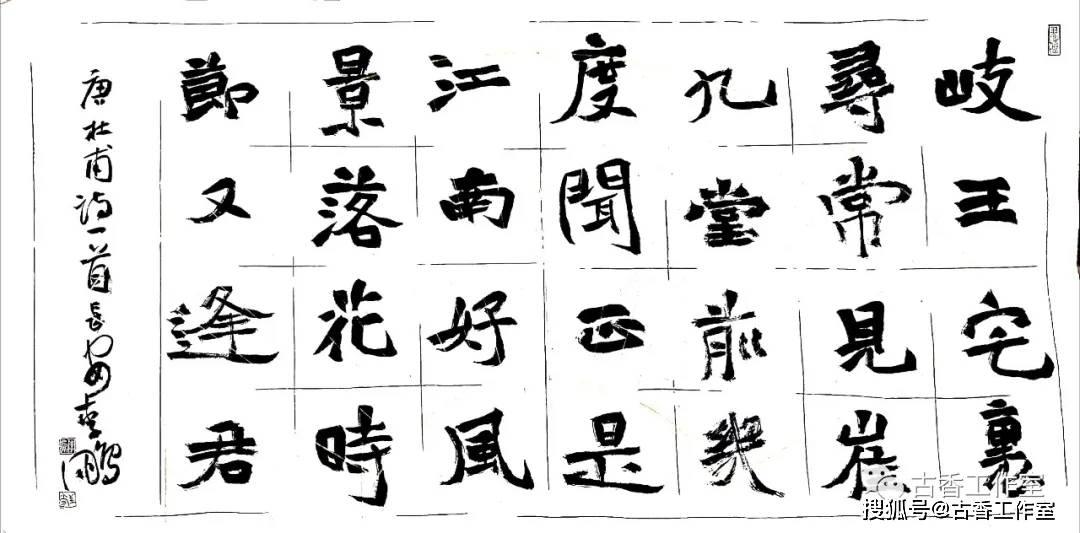 岐王宅裏
尋常見崔
九堂前幾
度聞正是
江南好風
景落花時
節又逢君
唐杜甫诗一首長安李鵬
古香工作室
搜狐号@古香工作室